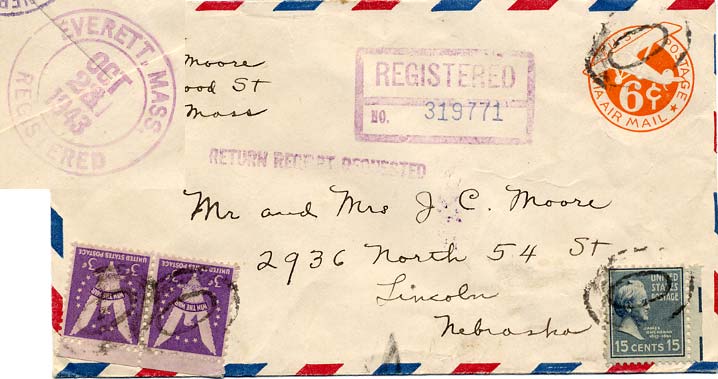 EVERETT, MASS.
OCT
1943
REGISTERED
Moore
ood St
Mass
REGISTERED
NO. 319771
RETURN RECEIPT REQUESTED
POSTAGE
6¢
VIA AIR MAIL
Mr and Mrs J. C. Moore
2936 North 54 St
Lincoln
Nebraska
UNITED STATES POSTAGE
3¢
WIN THE WAR
UNITED STATES POSTAGE
3¢
WIN THE WAR
UNITED
STATES
POSTAGE
JAMES
BUCHANAN
15 CENTS 15